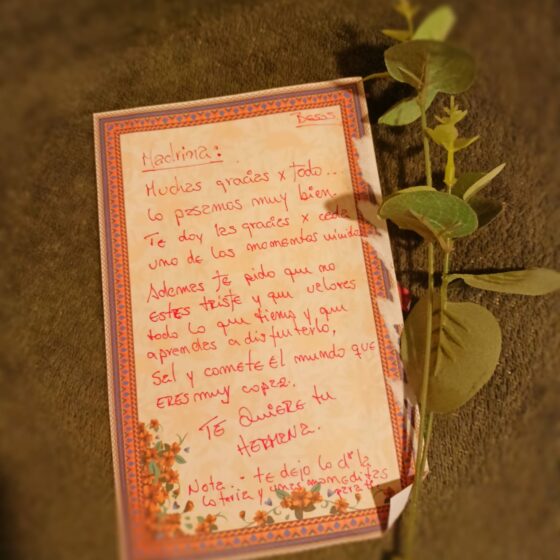 Besos
Madrina:
Muchas gracias x todo..
Lo pasamos muy bien.
Te doy las gracias x cada
uno de los momentos vividos
Ademas te pido que no
estes triste y que valores
todo lo que tienes y que
aprendas a disfrutarlo,
Sal y comete El mundo que
ERES muy capaz.
TE QUIERE tu
HERMANA.
Nota.- te dejo lo d la
loteria y unas moneditas
para ti